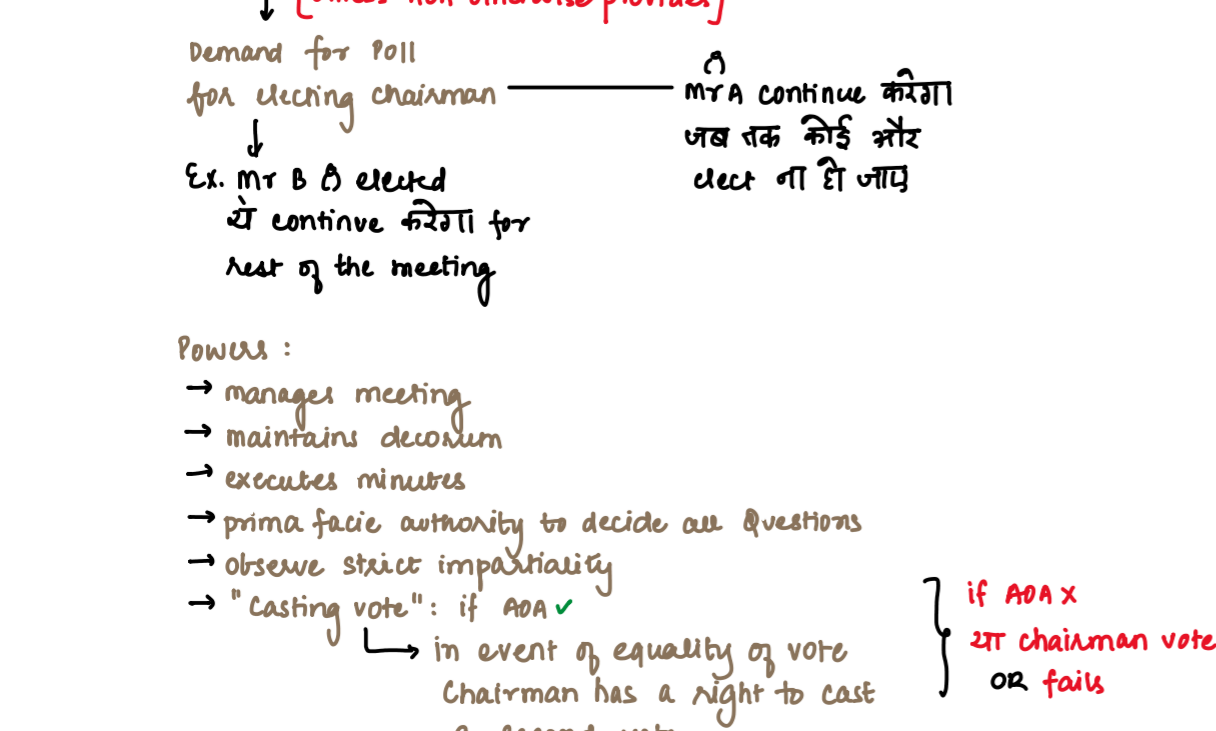 otherwise provided]
Demand for Poll
for electing chairman
Mr A continue करेगा
जब तक कोई और
elect ना हो जाए
Ex. Mr B elected
ये continue करेगा for
rest of the meeting
Powers :
→ manages meeting
→ maintains decorum
→ executes minutes
→ prima facie authority to decide all Questions
→ observe strict impartiality
→ "Casting vote" : if AOA ✓
in event of equality of vote
Chairman has a right to cast
if AOA X
या chairman vote
OR fails